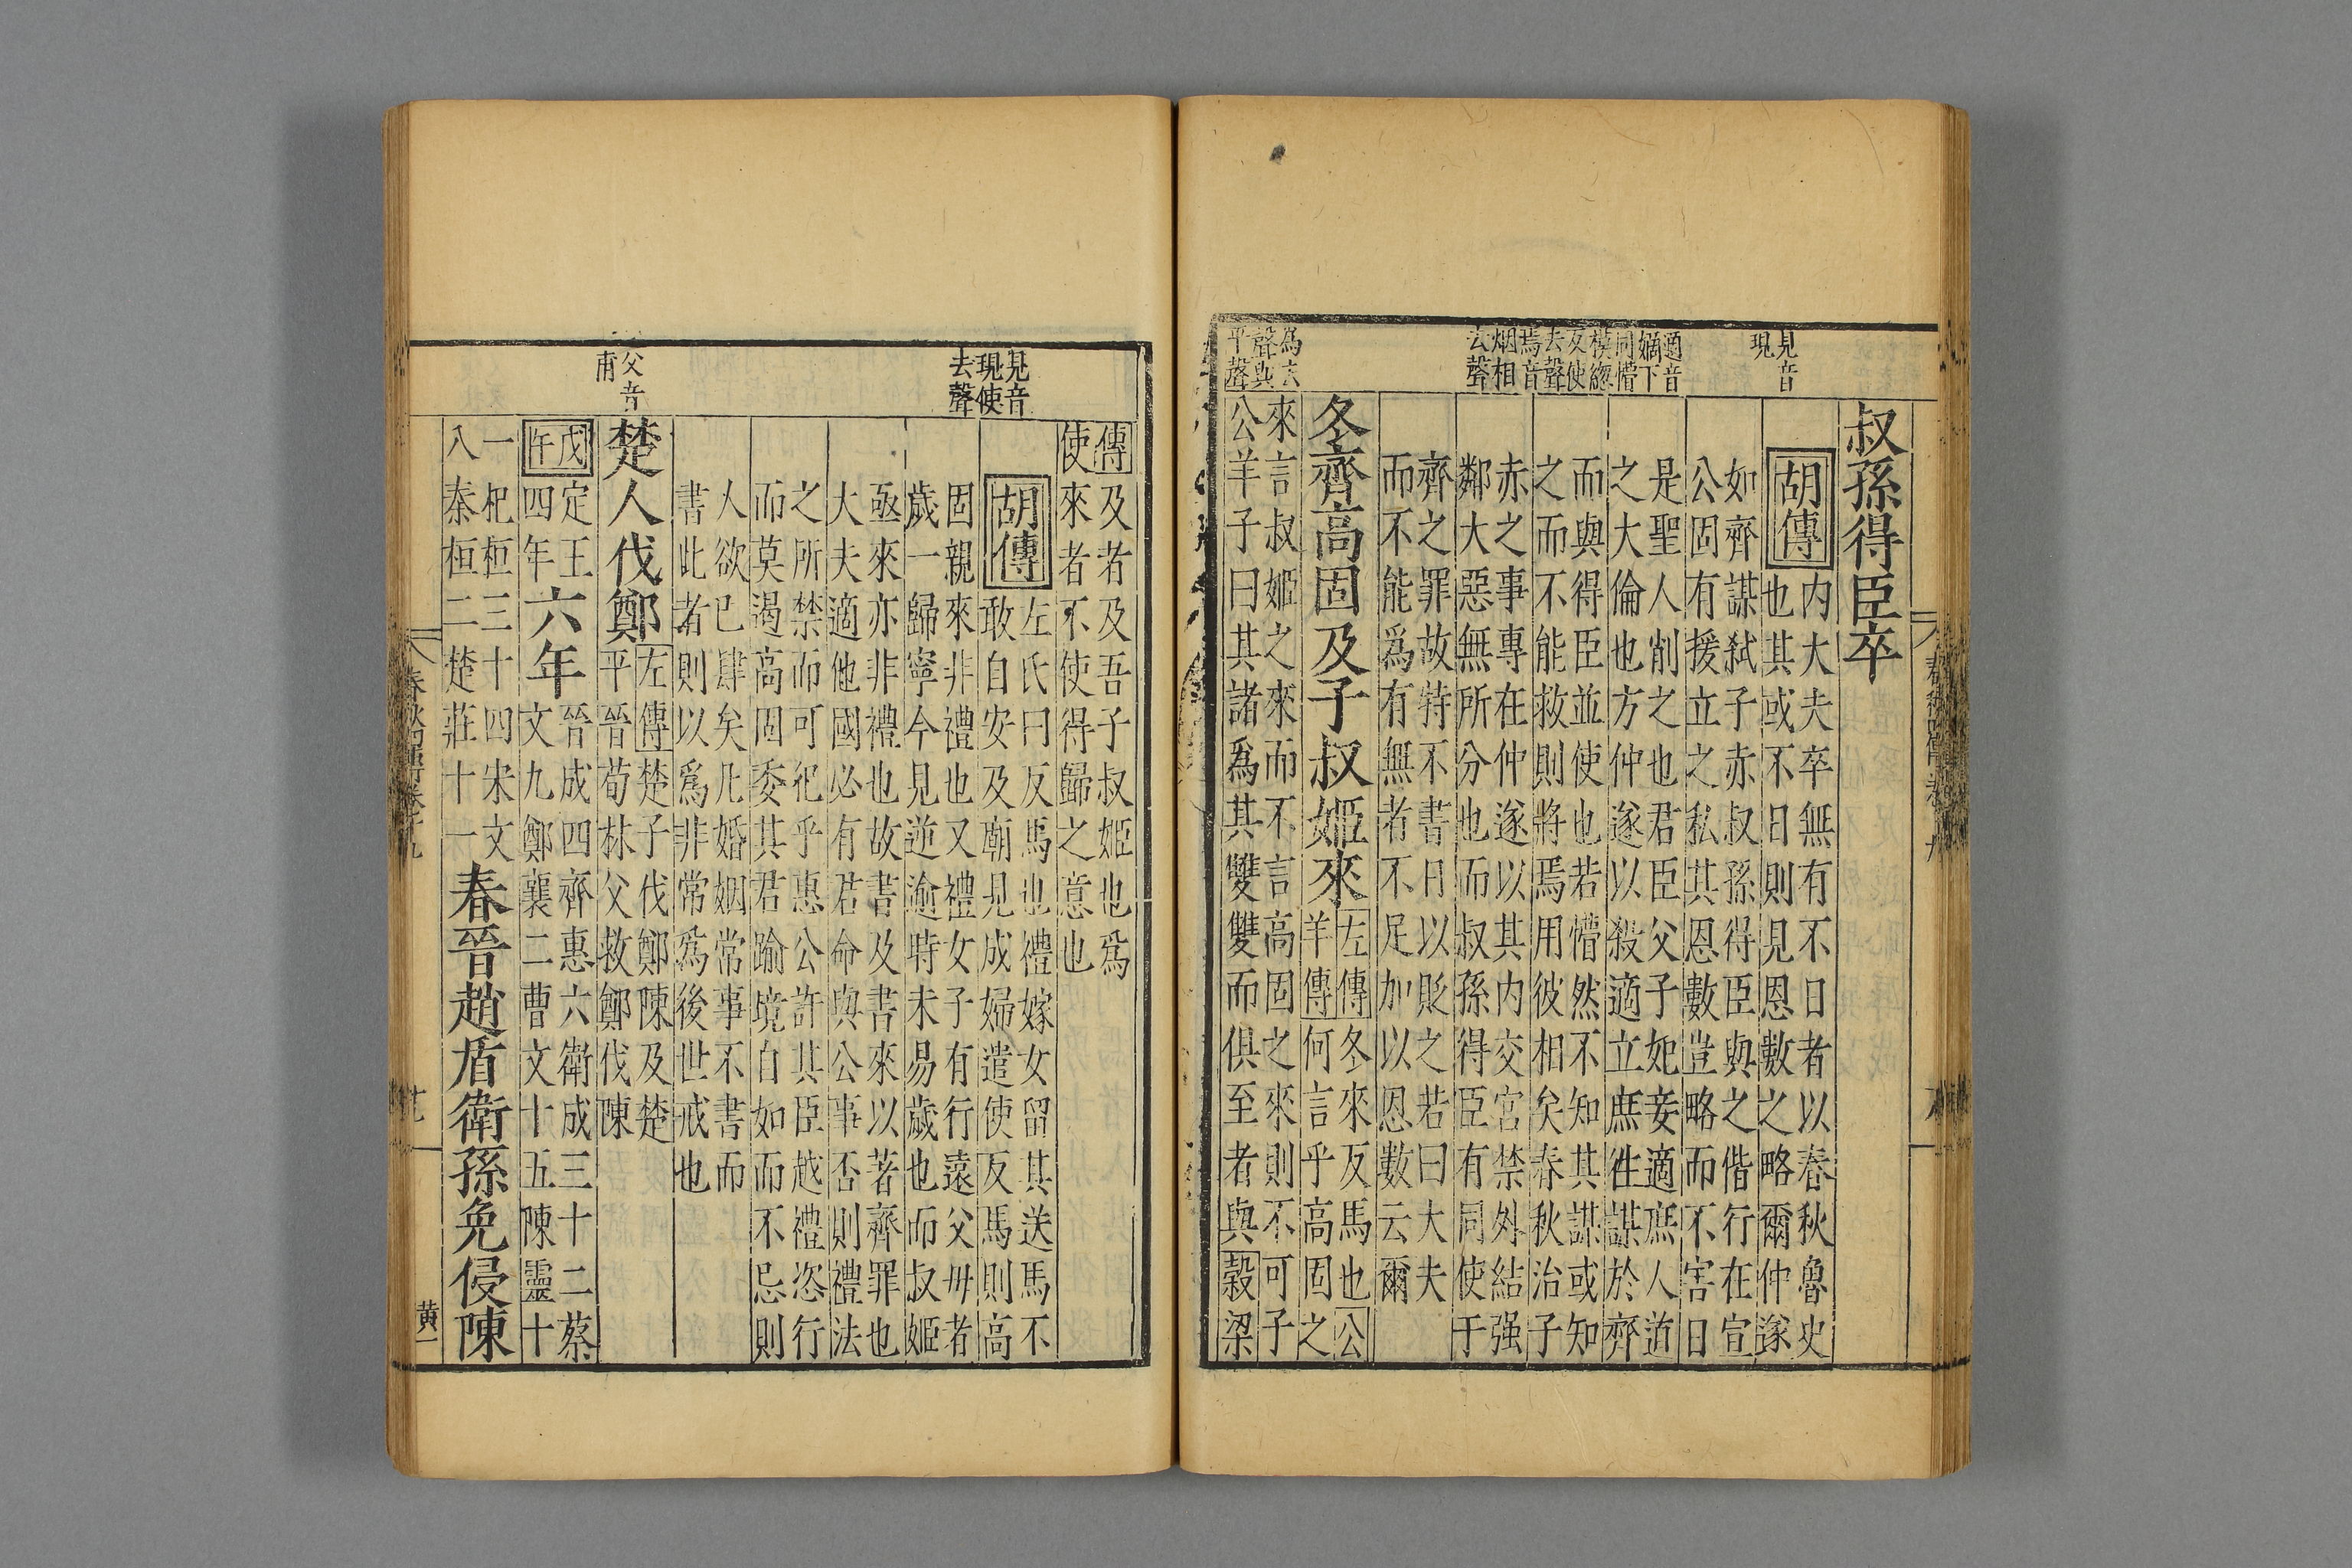 叔孫得臣卒
胡傳
内大夫卒無有不日者以春秋魯史
也其或不日則見恩數之略爾仲遂
如齊謀弑子赤叔孫得臣與之偕行在宣
公固有援立之私其恩數豈略而不害日
是聖人削之也君臣父子妃妾適庶人道
之大倫也方仲遂以殺適立庶徃謀於齊
而與得臣並使也若懵然不知其謀或知
之而不能救則將焉用彼相矣春秋治子
赤之事專在仲遂以其内交宮禁外結强
鄰大惡無所分也而叔孫得臣有同使于
齊之罪故特不書日以貶之若曰大夫
而不能爲有無者不足加以恩數云爾
冬齊高固及子叔姬來
左傳冬來反馬也公
羊傳何言乎高固之
來言叔姬之來而不言高固之來則不可子
公羊子曰其諸爲其雙雙而俱至者與穀梁
見音
現
適音
嫡下
同懵
模緫
反使
去聲
焉音
烟相
去聲
為去
聲與
平聲
傳及者及吾子叔姬也爲
使來者不使得歸之意也
胡傳
左氏曰反馬也禮嫁女留其送馬不
敢自安及廟見成婦遣使反馬則高
固親來非禮也又禮女子有行遠父母者
歲一歸寧今見逆逾時未易歲也而叔姬
亟來亦非禮也故書及書來以著齊罪也
大夫適他國必有君命與公事否則禮法
之所禁而可犯乎惠公許其臣越禮恣行
而莫遏高固委其君踰境自如而不忌則
人欲已肆矣凡婚姻常事不書而
書此者則以爲非常爲後世戒也
楚人伐鄭
左傳楚子伐鄭陳及楚
平晉荀林父救鄭伐陳
戊午
定王
四年
六年
晉成四齊惠六衛成三十二蔡
文九鄭襄二曹文十五陳靈十
一杞桓三十四宋文
八秦桓二楚莊十一
春晉趙盾衛孫免侵陳
見音
現使
去聲
父音
甫
黄一